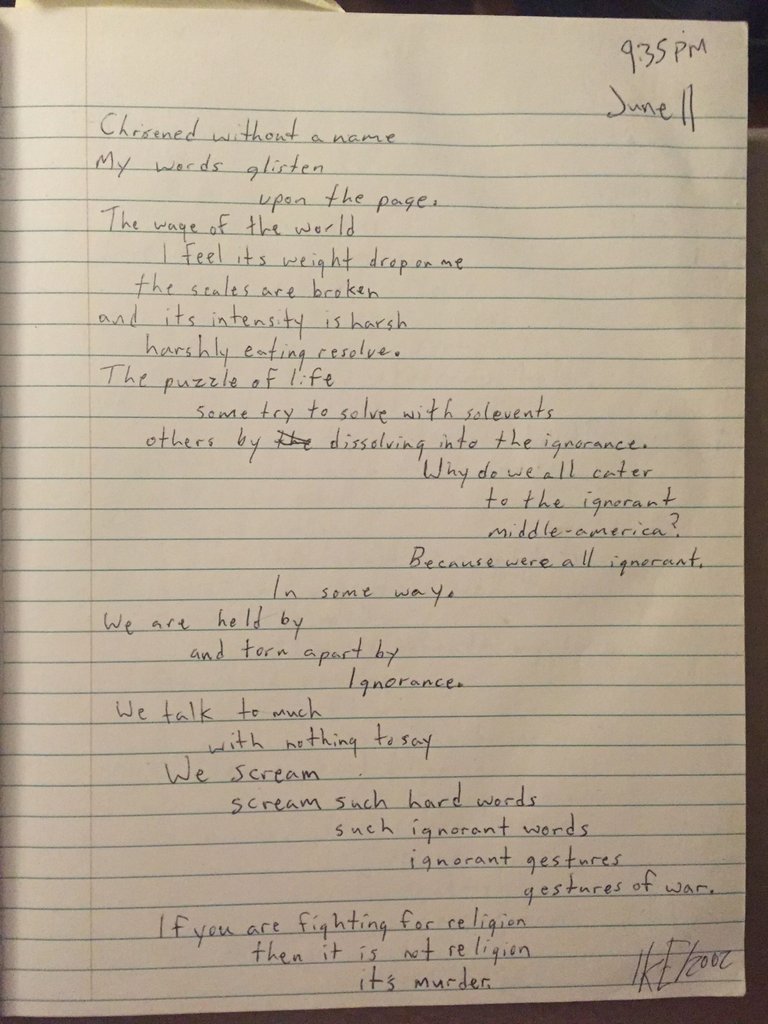 9:35 PM
June 11
Chrisened without a name
My words glisten
upon the page.
The wage of the world
I feel its weight drop on me
the scales are broken
and its intensity is harsh
harshly eating resolve.
The puzzle of life
some try to solve with solevents
others by the dissolving into the ignorance.
Why do we all cater
to the ignorant
middle-america?
Because were all ignorant.
In some way.
We are held by
and torn apart by
Ignorance.
We talk to much
with nothing to say
We scream
scream such hard words
such ignorant words
ignorant gestures
gestures of war.
If you are fighting for religion
then it is not religion
it's murder.
IKE/2002